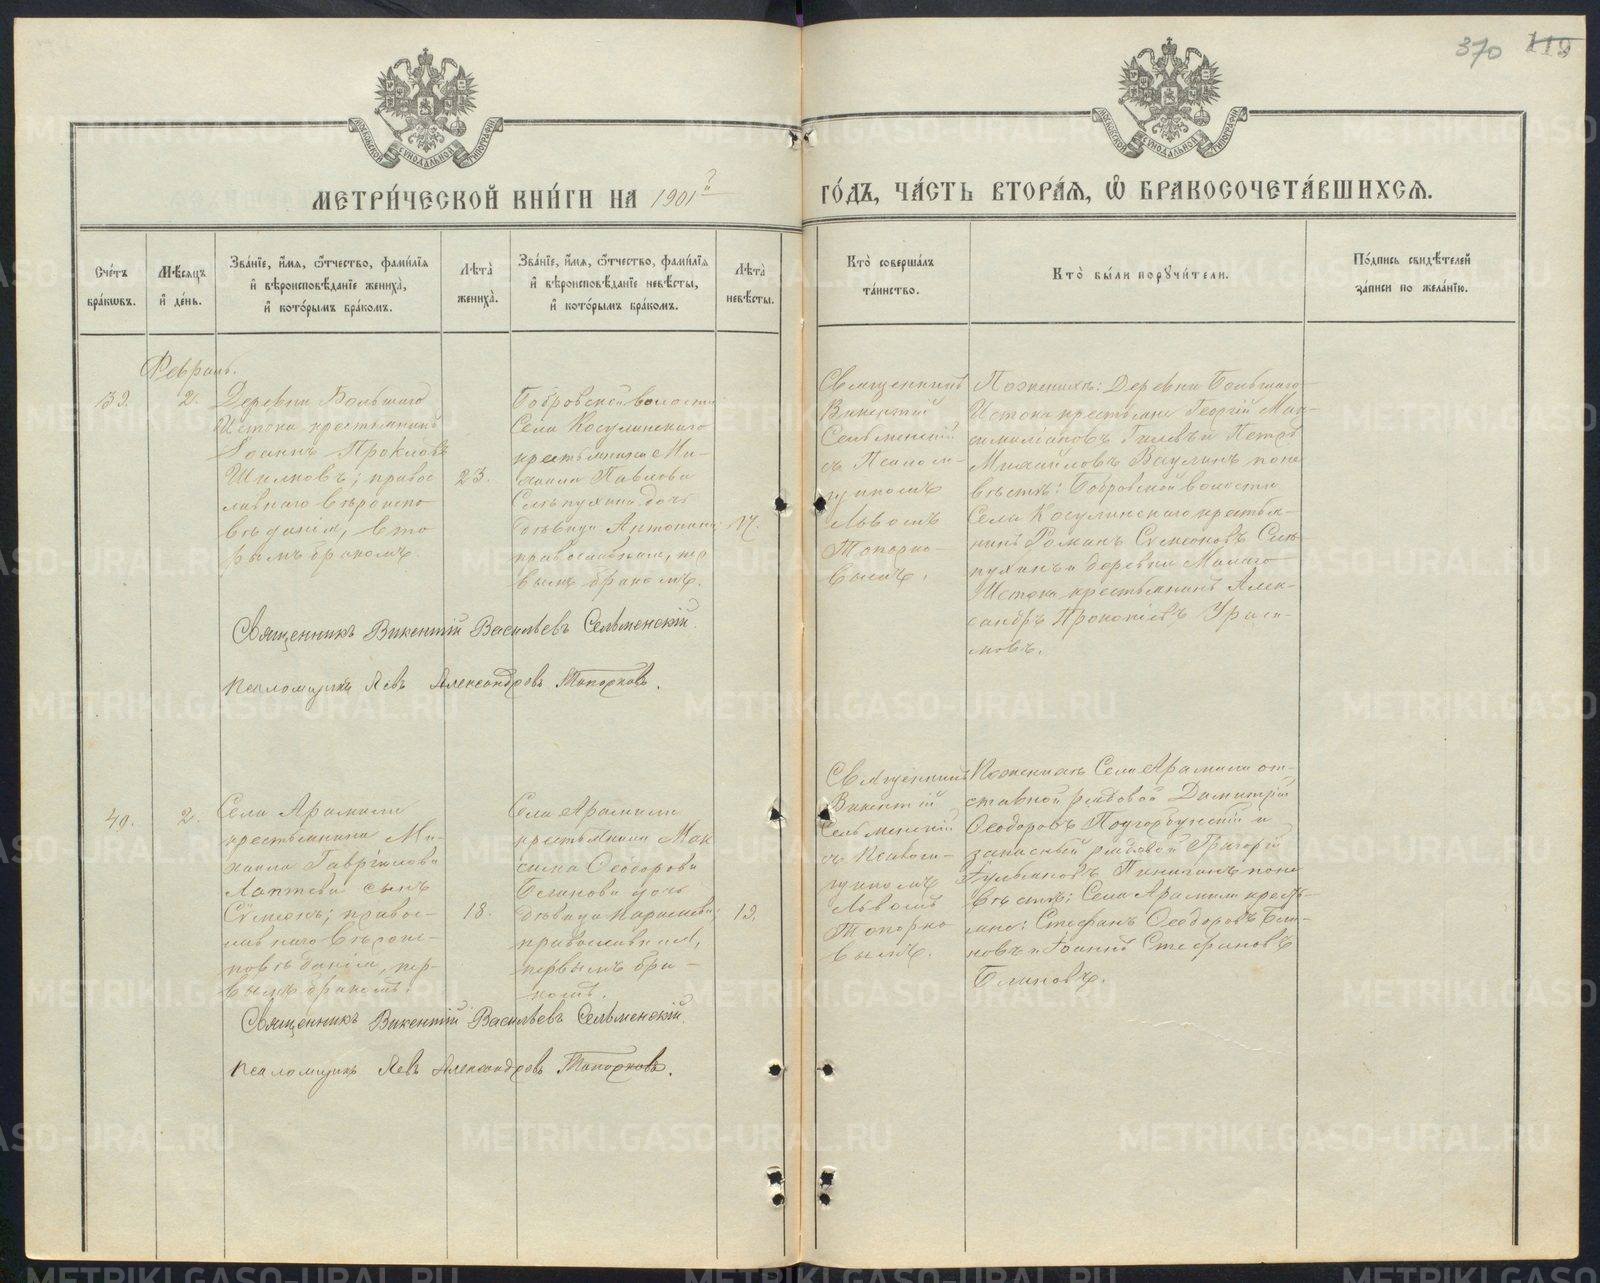 370 119
МЕТРИ́ЧЕСКОЙ КНИ́ГИ НА 1901й ГО́ДЪ, ЧА́СТЬ ВТОРА́Я, Ѽ БРАКОСОЧЕТА́ВШИХСЯ.
Сче́тъ бра́кѡвъ.
Мѣ́сяцъ и де́нь.
Зва́нїе, и́мя, ѻ́тчество, фами́лїя
и вѣроисповѣ́данїе жениха̀,
и кото́рымъ бра́комъ.
Лѣта̀ жениха̀.
Зва́нїе, и́мя, ѻ́тчество, фами́лїя
и вѣроисповѣ́данїе невѣ́сты,
и кото́рымъ бра́комъ.
Лѣта̀ невѣ́сты.
Кто̀ соверша́лъ
та́инство.
Кто̀ бы́ли порꙋчи́тели.
По́дпись свидѣ́телей
за́писи по жела́нїю.
Февраль.
39.
2.
Деревни Большаго
Истока крестьянинъ
Іоаннъ Прокловъ
Шиловъ; правос
лавнаго вѣроиспо
вѣданія, вто
рымъ бракомъ.
23.
Бобровской волости
Села Косулинскаго
крестьянина Ми-
хаила Павлова
Сляпухина дочь
дѣвица Антонина
православная, пер
вымъ бракомъ.
17.
Священникъ
Викентій
Сельменскій
съ Псалом-
щикомъ
Львомъ
Топорко-
вымъ.
По женихѣ: Деревни Большаго
Истока крестьяне Георгій Мак-
симиліановъ Гилевъ и Петръ
Михайловъ Ваулинъ по не
вѣстѣ: Бобровской волости
Села Косулинскаго крестья-
нинъ Романъ Сѵмеоновъ Сля-
пухинъ и деревни Малаго
Истока крестьянинъ Алек-
сандръ Прокопіевъ Ураси-
мовъ.
Священникъ Викентій Васильевъ Сельменскій.
Псаломщикъ Левъ Александровъ Топорковъ.
40.
2.
Села Арамили
крестьянина Ми-
хаила Гавріилова
Лаптева сынъ
Сѵмеонъ; правос-
лавнаго вѣроис-
повѣданія, пер-
вымъ бракомъ.
18.
Села Арамили
крестьянина Мак
сима Ѳеодорова
Блинова дочь
дѣвица Параскева;
православная,
первымъ бра-
комъ.
19.
Священникъ
Викентій
Сельменскій
съ Псалом-
щикомъ
Львомъ
Топорко
вымъ.
По женихѣ Села Арамили от-
ставной рядовой Димитрій
Ѳеодоровъ Подгорбунскій и
запасный рядовой Григорій
по не
вѣстѣ: Села Арамили крестья-
яне: Стефанъ Ѳеодоровъ Бли-
новъ и Іоаннъ Стефановъ
Блиновъ.
Священникъ Викентій Васильевъ Сельменскій
Псаломщикъ Левъ Александровъ Топорковъ.
METRIKI.GASO-URAL.RU